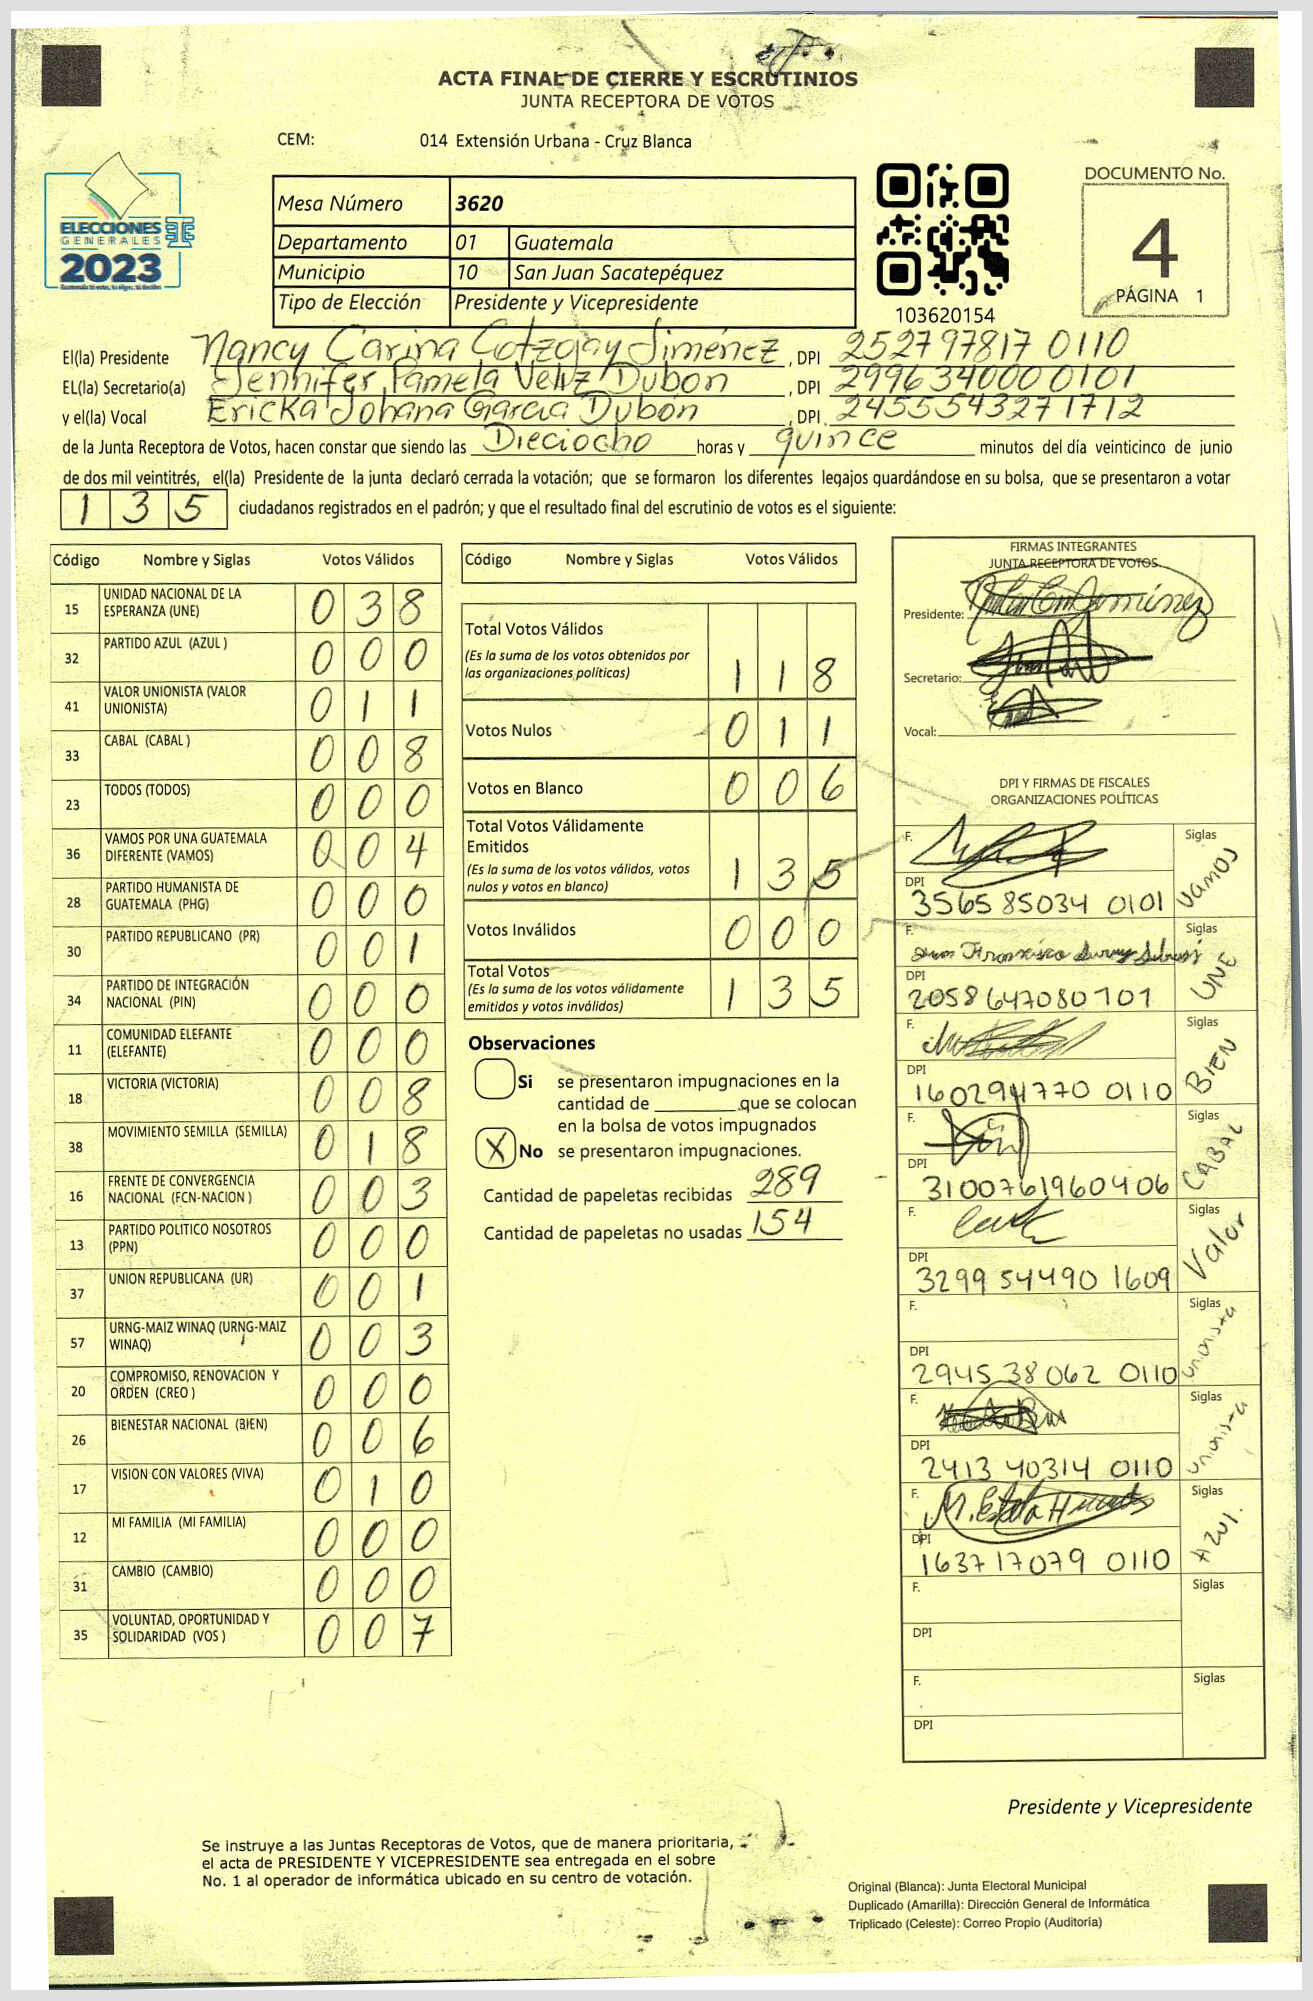 ACTA FINAL DE CIERRE Y ESCRUTINIOS
JUNTA RECEPTORA DE VOTOS
CEM: 014 Extensión Urbana - Cruz Blanca
ELECCIONES
GENERALES
2023
Mesa Número 3620
Departamento 01 Guatemala
Municipio 10 San Juan Sacatepéquez
Tipo de Elección Presidente y Vicepresidente
103620154
DOCUMENTO No.
4
PÁGINA 1
El(la) Presidente Nancy Carina Cotzojay Jiménez, DPI 252797817 0110
EL(la) Secretario(a) Jennifer Pamela Veliz Dubon, DPI 299634000 0101
y el(la) Vocal Ericka Johana Garcia Dubón, DPI. 2455543271712
de la Junta Receptora de Votos, hacen constar que siendo las Dieciocho horas y quince minutos del día veinticinco de junio
de dos mil veintitrés, el(la) Presidente de la junta declaró cerrada la votación; que se formaron los diferentes legajos guardándose en su bolsa, que se presentaron a votar
1 3 5 ciudadanos registrados en el padrón; y que el resultado final del escrutinio de votos es el siguiente:
Código Nombre y Siglas Votos Válidos
15 UNIDAD NACIONAL DE LA ESPERANZA (UNE) 0 3 8
32 PARTIDO AZUL (AZUL ) 0 0 0
41 VALOR UNIONISTA (VALOR UNIONISTA) 0 1 1
33 CABAL (CABAL ) 0 0 8
23 TODOS (TODOS) 0 0 0
36 VAMOS POR UNA GUATEMALA DIFERENTE (VAMOS) 0 0 4
28 PARTIDO HUMANISTA DE GUATEMALA (PHG) 0 0 0
30 PARTIDO REPUBLICANO (PR) 0 0 1
34 PARTIDO DE INTEGRACIÓN NACIONAL (PIN) 0 0 0
11 COMUNIDAD ELEFANTE (ELEFANTE) 0 0 0
18 VICTORIA (VICTORIA) 0 0 8
38 MOVIMIENTO SEMILLA (SEMILLA) 0 1 8
16 FRENTE DE CONVERGENCIA NACIONAL (FCN-NACION ) 0 0 3
13 PARTIDO POLITICO NOSOTROS (PPN) 0 0 0
37 UNION REPUBLICANA (UR) 0 0 1
57 URNG-MAIZ WINAQ (URNG-MAIZ WINAQ) 0 0 3
20 COMPROMISO, RENOVACION Y ORDEN (CREO ) 0 0 0
26 BIENESTAR NACIONAL (BIEN) 0 0 6
17 VISION CON VALORES (VIVA) 0 1 0
12 MI FAMILIA (MI FAMILIA) 0 0 0
31 CAMBIO (CAMBIO) 0 0 0
35 VOLUNTAD, OPORTUNIDAD Y SOLIDARIDAD (VOS ) 0 0 7
Código Nombre y Siglas Votos Válidos
Total Votos Válidos
(Es la suma de los votos obtenidos por
las organizaciones políticas) 1 1 8
Votos Nulos 0 1 1
Votos en Blanco 0 0 6
Total Votos Válidamente
Emitidos
(Es la suma de los votos válidos, votos
nulos y votos en blanco) 1 3 5
Votos Inválidos 0 0 0
Total Votos
(Es la suma de los votos válidamente
emitidos y votos inválidos) 1 3 5
Observaciones
Si se presentaron impugnaciones en la
cantidad de ________ que se colocan
en la bolsa de votos impugnados
X No se presentaron impugnaciones.
Cantidad de papeletas recibidas 289
Cantidad de papeletas no usadas 154
FIRMAS INTEGRANTES
JUNTA RECEPTORA DE VOTOS
Presidente:
Secretario:
Vocal:
DPI Y FIRMAS DE FISCALES
ORGANIZACIONES POLÍTICAS
F. Siglas VAMOS
DPI 3565 85034 0101
F. Siglas UNE
DPI 2058647080101
F. Siglas BIEN
DPI 160294770 0110
F. Siglas CABAL
DPI 3100761960406
F. Siglas Valor
DPI 3299 54490 1609
F. Siglas unionista
DPI 2945 38062 0110
F. Siglas unionista
DPI 2413 40314 0110
F. Siglas AZUL.
DPI 1637 17079 0110
F. Siglas
DPI
F. Siglas
DPI
Presidente y Vicepresidente
Se instruye a las Juntas Receptoras de Votos, que de manera prioritaria,
el acta de PRESIDENTE Y VICEPRESIDENTE sea entregada en el sobre
No. 1 al operador de informática ubicado en su centro de votación.
Original (Blanca): Junta Electoral Municipal
Duplicado (Amarilla): Dirección General de Informática
Triplicado (Celeste): Correo Propio (Auditoría)